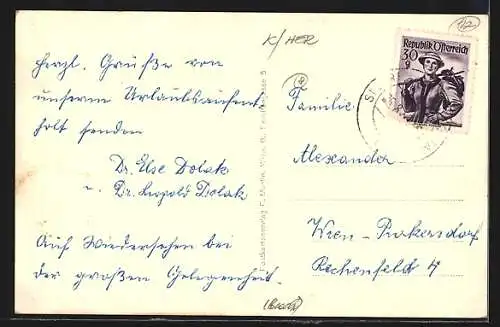 K/HER
12
Herzl. Grüße von
unserem Urlaubsaufent
halt senden
Dr. Else Dolak
u. Dr. Leopold Dolak
Auf Wiedersehen bei
der großen Gelegenheit.
Republik Österreich
30
g
Familie
Alexander
Wien - Purkersdorf
Rechenfeld 4